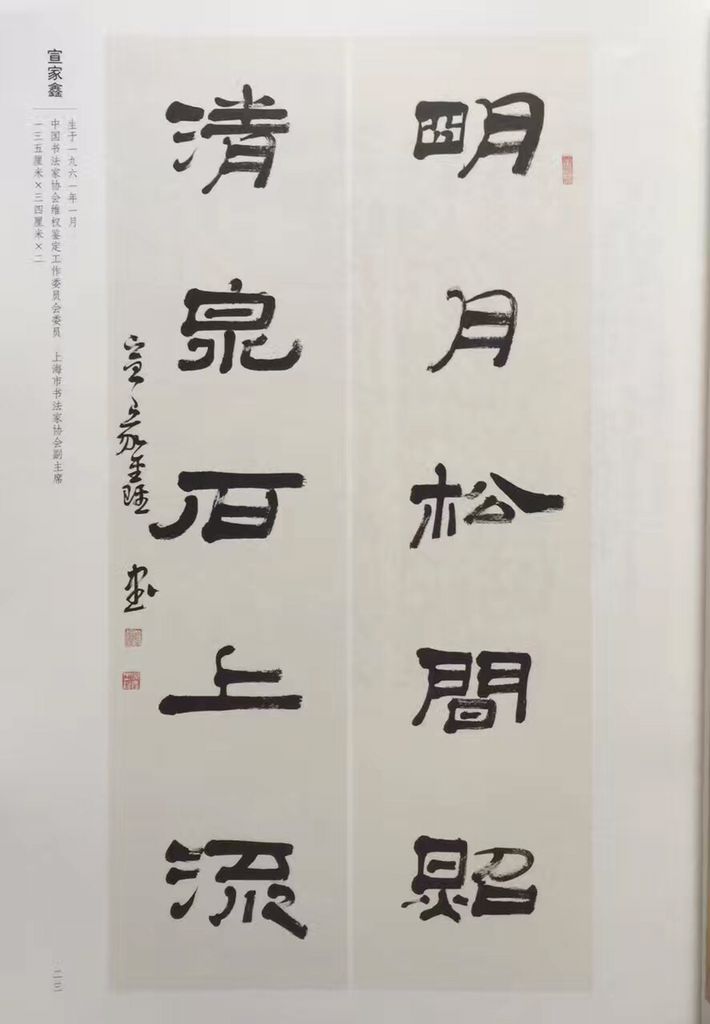 明月松間照
清泉石上流
宣家鑫書
宣家鑫
生于一九六一年一月
中国书法家协会维权鉴定工作委员会委员 上海市书法家协会副主席
一三五厘米×三四厘米×二
二三